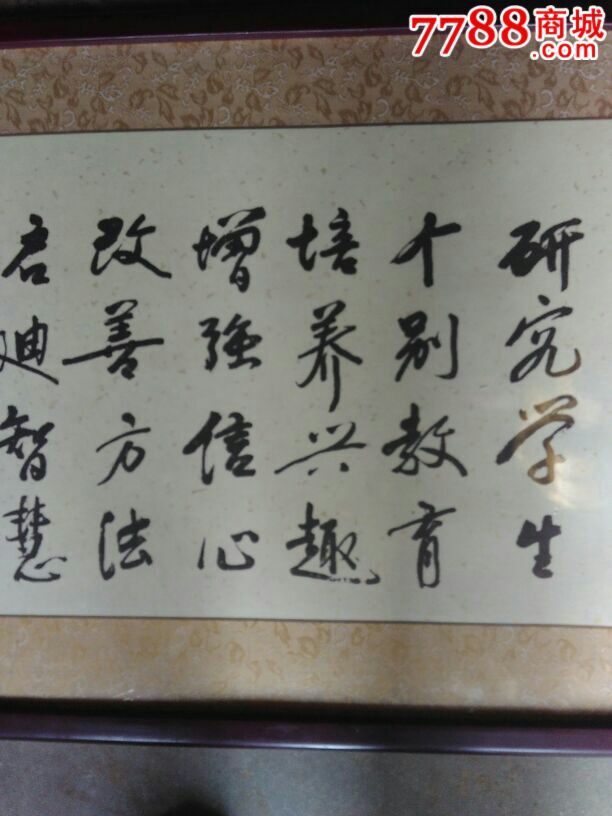 7788商城
.com
研究学生
个别教育
培养兴趣
增强信心
改善方法
启迪智慧